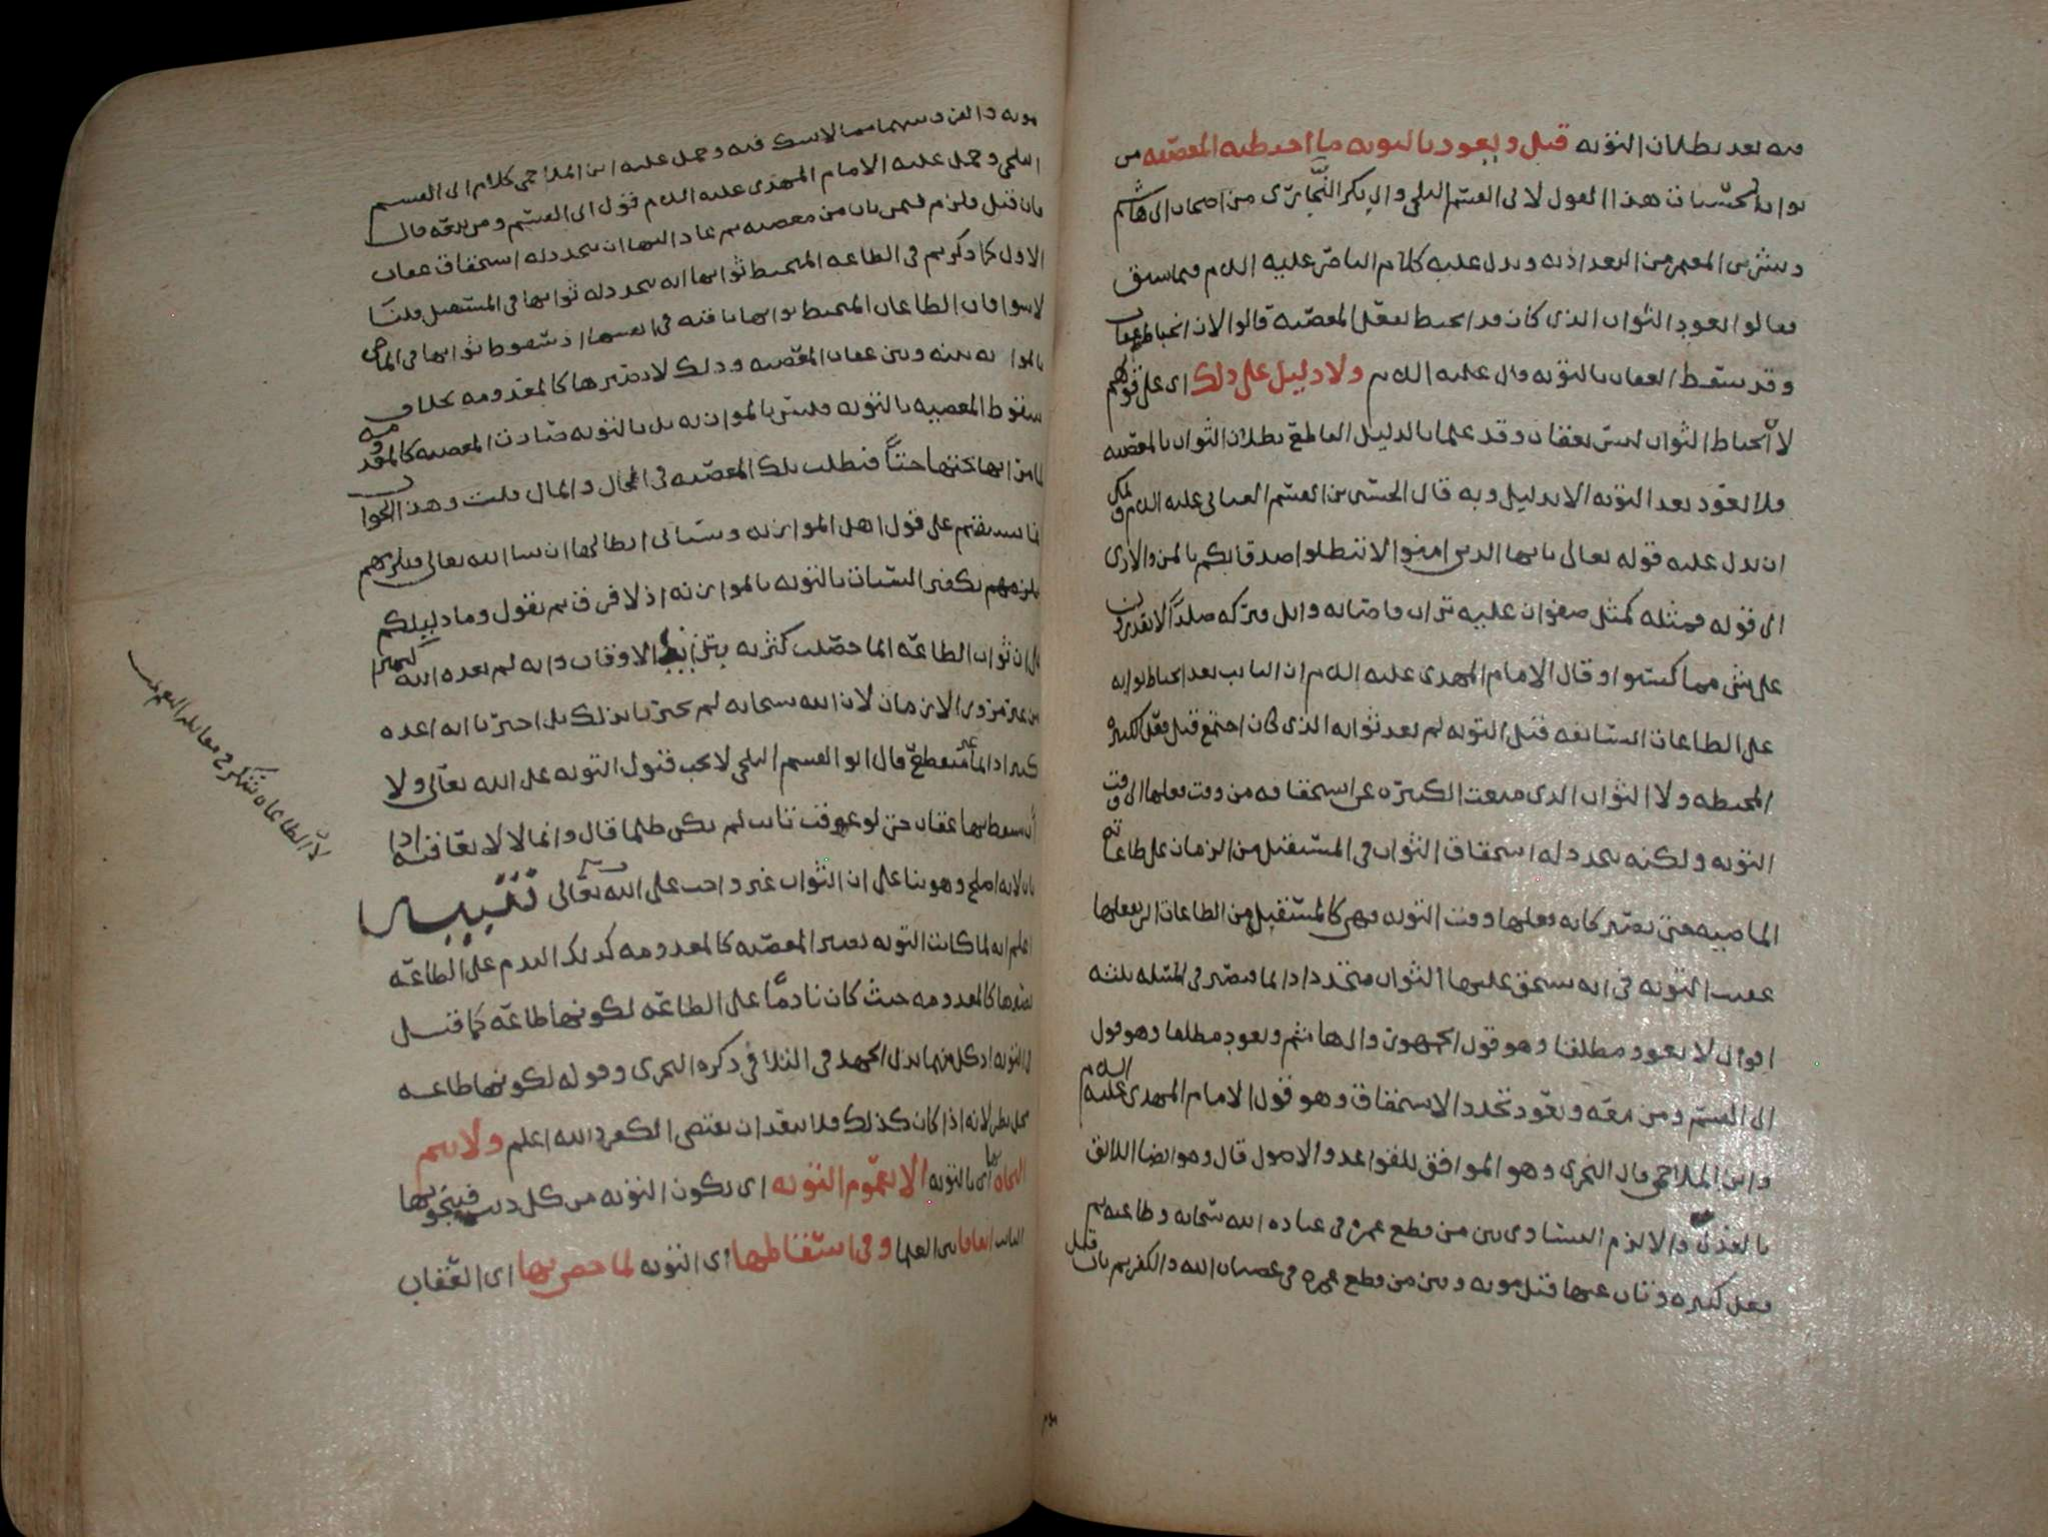 فيه بعد بطلان التوبه قيل ويعود بالتوبه ما احبطته المعصيه من
ثواب الحسنات هذا القول لابي القسم البلخي وابي بكر من اصحاب ابي هاشم
وبشر بن المعتمر من البغداذيه ويدل عليه كلام الناصر عليه السلم فيما سبق
فقالوا يعود الثواب الذي كان قد انحبط بفعل المعصيه قالوا لان انحباطه عقاب
وقد سقط العقاب بالتوبه قال عليه السلم ولا دليل على ذلك اي على قولهم
لان انحباط الثواب ليس بعقاب وقد علمنا بالدليل القاطع بطلان الثواب بالمعصيه
فلا يعود بعد التوبه الا بدليل وبه قال الحسين بن القسم العياني عليه السلم ويمكن
ان يدل عليه قوله تعالى يايها الذين امنوا لا تبطلوا صدقاتكم بالمن والاذى
الى قوله فمثله كمثل صفوان عليه تراب فاصابه وابل فتركه صلدا لا يقدرون
على شي مما كسبوا وقال الامام المهدي عليه السلم ان التايب بعد انحباط ثوابه
على الطاعات السابقه قبل التوبه لم يعد ثوابه الذي كان اجتمع قبل فعل الكبيره
المحبطه ولا الثواب الذي منعت الكبيره عن استحقاقه من وقت فعلها الى وقت
التوبه ولكنه يتجدد له استحقاق الثواب في المستقبل من الزمان على طاعاته
الماضيه حتى تصير كانه فعلها وقت التوبه فهي كالمستقبل من الطاعات التي يفعلها
عقيب التوبه في انه يستحق عليها الثواب متجددا دايما فيصير في المسئله ثلثه
اقوال لا يعود مطلقا وهو قول الجمهور والهاشم ويعود مطلقا وهو قول
ابي القسم ومن معه ويعود بتجدد الاستحقاق وهو قول الامام المهدي عليه السلم
وابن الملاحمي قال النجري وهو الموافق للقواعد والاصول قال وهو ايضا اللائق
بالعدل والا لزم التساوي بين من قطع عمره في عباده الله سبحانه وطاعته ثم
فعل كبيره وتاب عنها قبل موته وبين من قطع عمره في عصيان الله والكفر ثم تاب قبل
موته والفرق بينهما مما لا شك فيه وحمل عليه ابن الملاحمي كلام ابي القسم
البلخي وحمل عليه الامام المهدي عليه السلم قول ابي القسم ومن معه قال
فان قيل فيلزم فيمن تاب من معصيه ثم عاد اليها ان يتجدد له استحقاق عقاب
الاول كما ذكرتم في الطاعه المنحبط ثوابها انه يتجدد له ثوابها في المستقبل قلنا
لا سوا فان الطاعات المنحبط ثوابها باقيه في انفسها اذ سقوط ثوابها في الماضي
بالموازنه بينه وبين عقاب المعصيه وذلك لا يصيرها كالمعدومه بخلاف
سقوط المعصيه بالتوبه فليس بالموازنه بل بالتوبه صارت المعصيه كالمعدومه
فبطلت تلك المعصيه في الحال والمال قلت وهذا الجواب
انما يستقيم على قول اهل الموازنه وسياتي ابطالها ان شا الله تعالى
تكفير السيات بالتوبه بالموازنه اذ لا فرق ثم نقول وما دليلكم
على ان ثواب الطاعه انما حصلت كثرته بتزايد الاوقات وانه لم يعده الله كثيرا
من غير مرور الازمان لان الله سبحانه لم يخبرنا بذلك بل اخبرنا انه اعده
كثيرا دايما غير منقطع قال ابو القسم البلخي لا يجب قبول التوبه على الله تعالى ولا
ان يسقط بها عقاب حتى لو عوقب تايب لم يكن ظلما قال وانما لا يعاقبه اذا
تاب لانه اصلح وهو بنا على ان الثواب غير واجب على الله تعالى تنبيه
اعلم انه لما كانت التوبه تصير المعصيه كالمعدومه كذلك الندم على الطاعه
يصيرها كالمعدومه حيث كان نادما على الطاعه لكونها طاعه كما قيل
في التوبه اذ كل منهما بذل الجهد في التلافي ذكره النجري وقوله لكونها طاعه
محل نظر لانه اذا كان كذلك فلا يبعد ان يقتضي الكفر والله اعلم ولا يتم
النجاه بها اي بالتوبه الا بعموم التوبه اي تكون التوبه من كل ذنب فينجو بها
التايب اتفاقا بين العلما وفي اسقاطها اي التوبه لما خص بها اي العقاب